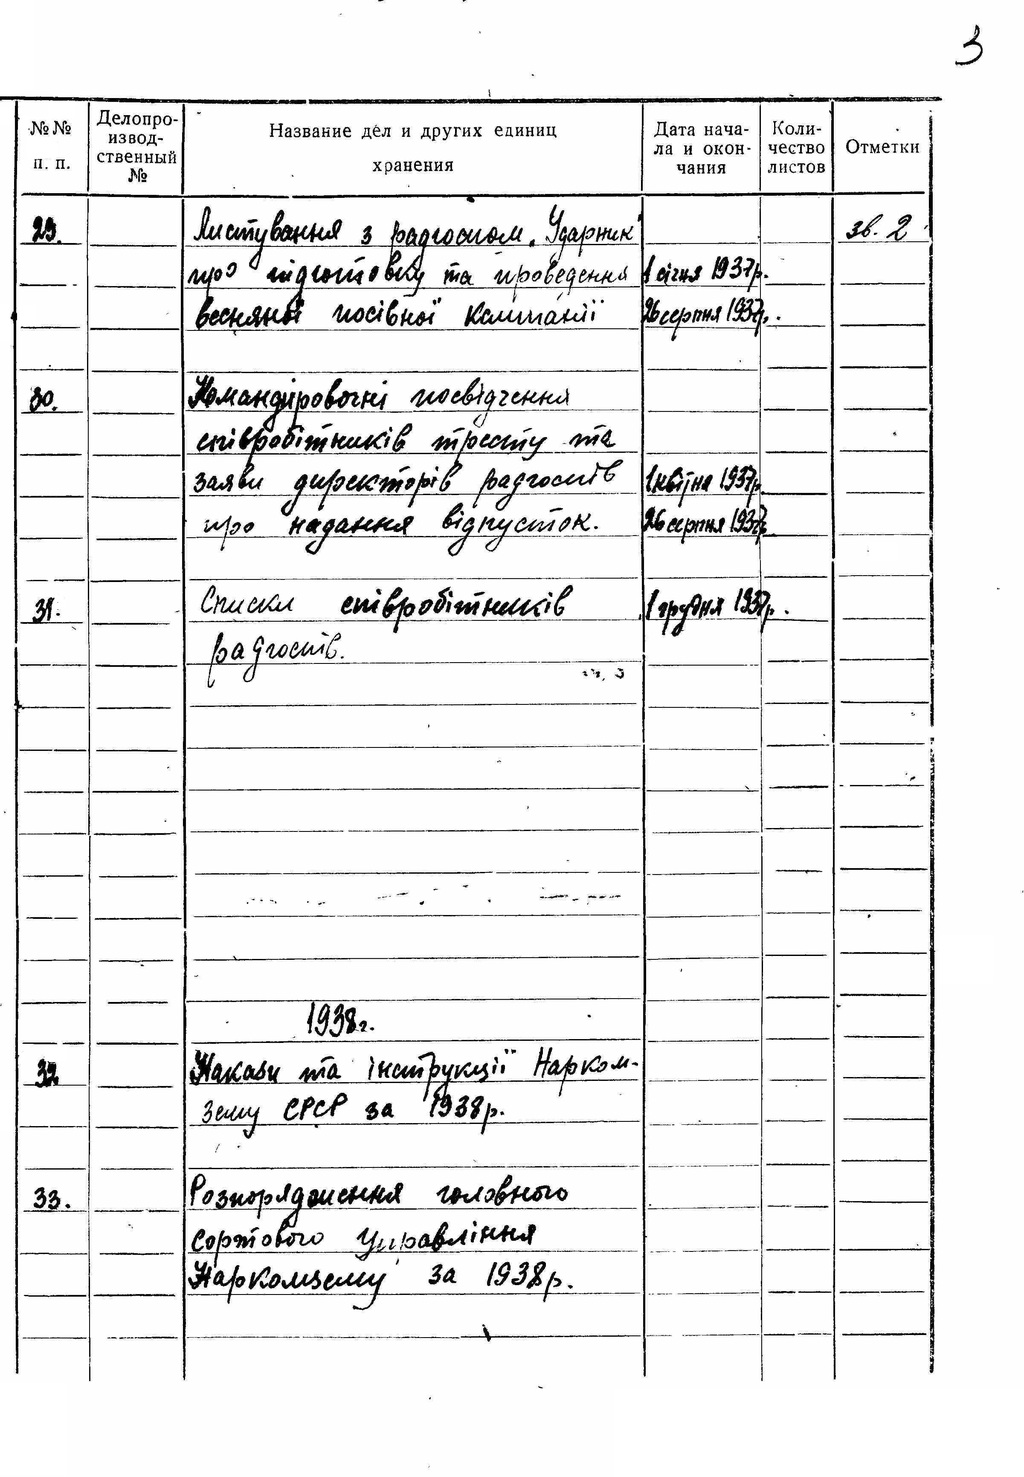 3
№№ п. п.
Делопро-
извод-
ственный
№
Название дел и других единиц
хранения
Дата нача-
ла и окон-
чания
Коли-
чество
листов
Отметки
29. Листування з радгоспом „Ударник" зв. 2
про підготовку та проведення 1 січня 1937р.
весняної посівної кампанії 26 серпня 1937р.
30. Командіровочні посвідчення
співробітників тресту та
заяви директорів радгоспів 1 квітня 1937р.
про надання відпусток. 26 серпня 1937р.
31. Списки співробітників 1 грудня 1937р.
радгоспів.
1938г.
32 Накази та інструкції Нарком-
зему СРСР за 1938р.
33. Розпорядження головного
сортового управління
Наркомзему за 1938р.